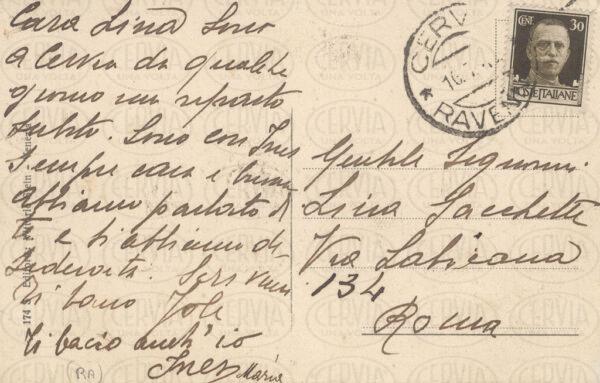 Cara Lina Sono
a Cervia da qualche
giorno mi riposto
subito. Sono con Ines
Sempre cara e buona
abbiamo parlato di
te e ti abbiamo de-
siderata.
Ti bacio Jole
Ti bacio anch'io
Ines Maria
(RA)
174
CERVIA
16.
* RAVENNA
CENT. 30
POSTE ITALIANE
Gentile Signorina
Lina Sacchetti
Via Labicana
134
Roma
CERVIA
UNA VOLTA